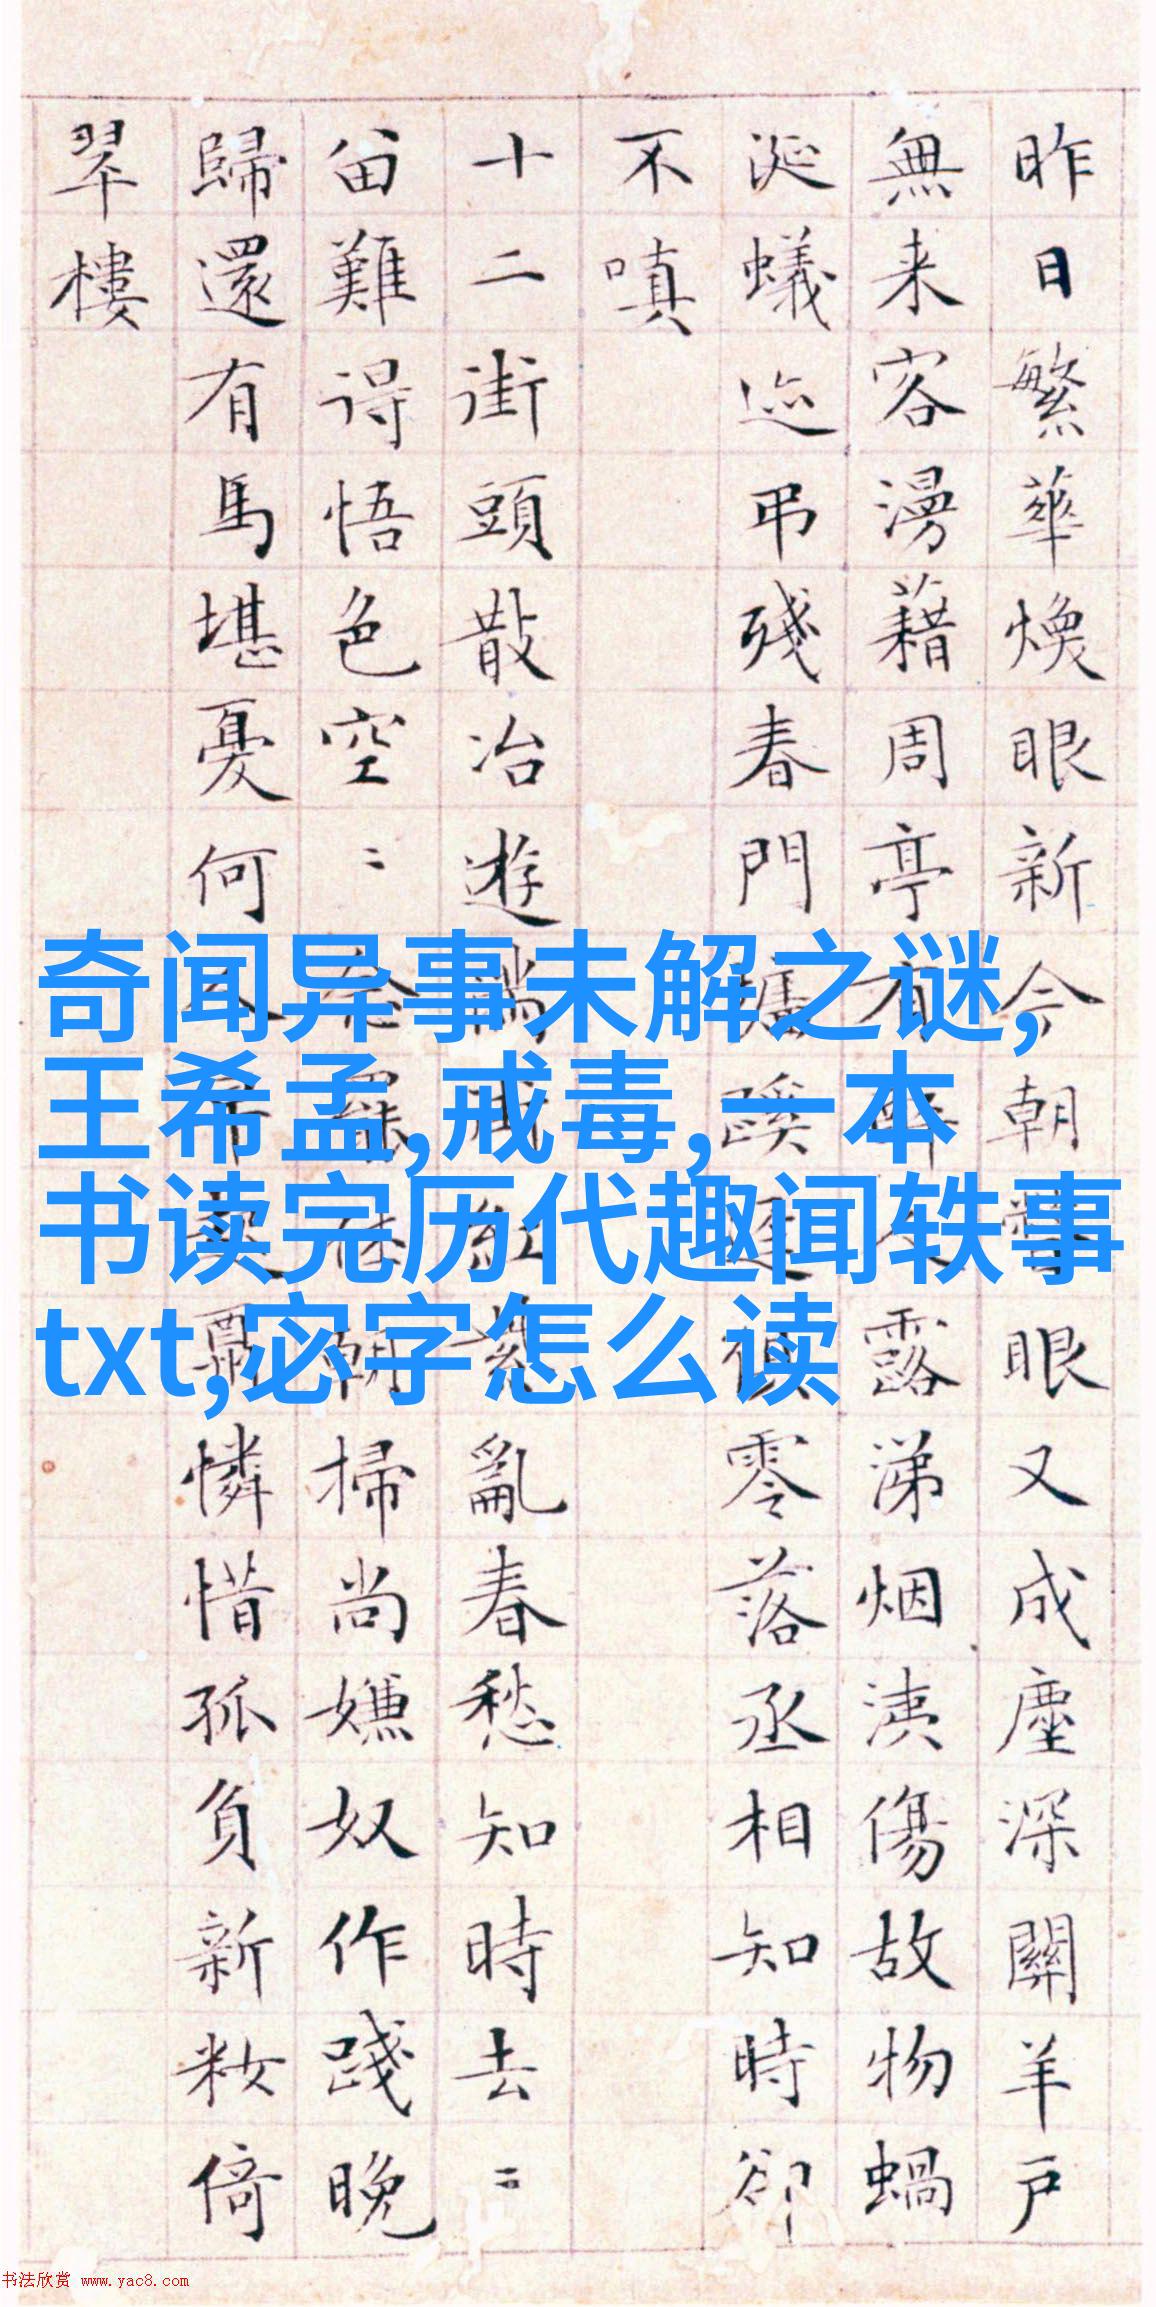 昨日繁華煥眼新今朝眼又成塵深關羊戶
無来客漫藉周亭有露涕烟洟傷故物蝸
涎蟻迹弔殘春門蹊零落丞相知時卻
不嗔
十二街頭散冶遊紅紫亂春愁知時去〻
畱難得悟色空〻朝掃尚嫌奴作踐晚
歸還有馬堪憂何憐惜孤負新籹倚
翠樓
奇闻异事未解之谜,
王希孟,戒毒,一本
书读完历代趣闻轶事
txt,宓字怎么读
书法欣赏 www.yac8.com